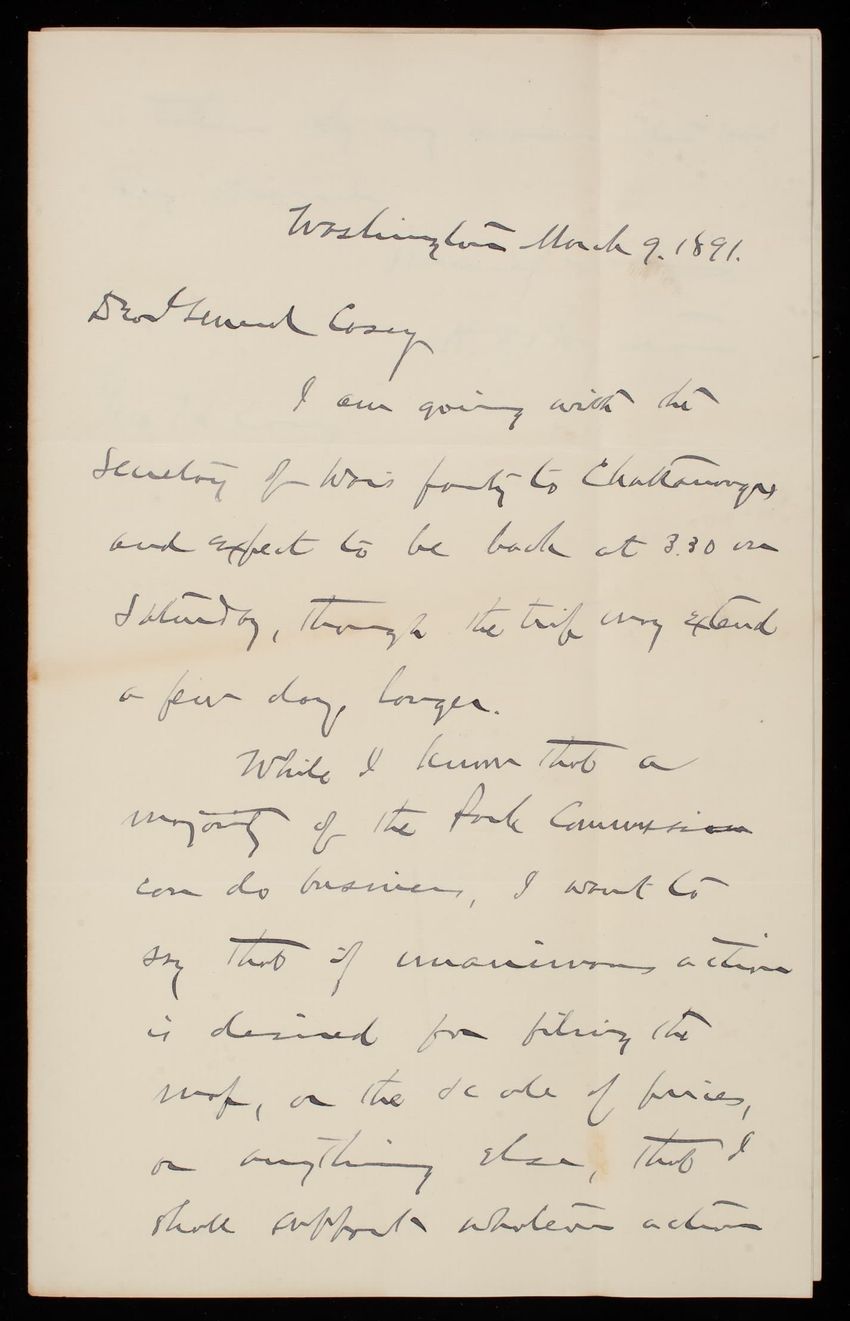 Washington March 9. 1891.
Dear General Casey
I am going with the
Secretary of War's party to Chattanooga
and expect to be back at 3.30 on
Saturday, though the trip may extend
a few days longer.
While I know that a
majority of the Park Commission
can do business, I want to
say that if unanimous action
is desired for filing the
map, or the scale of prices,
or anything else, that I
shall support whatever action